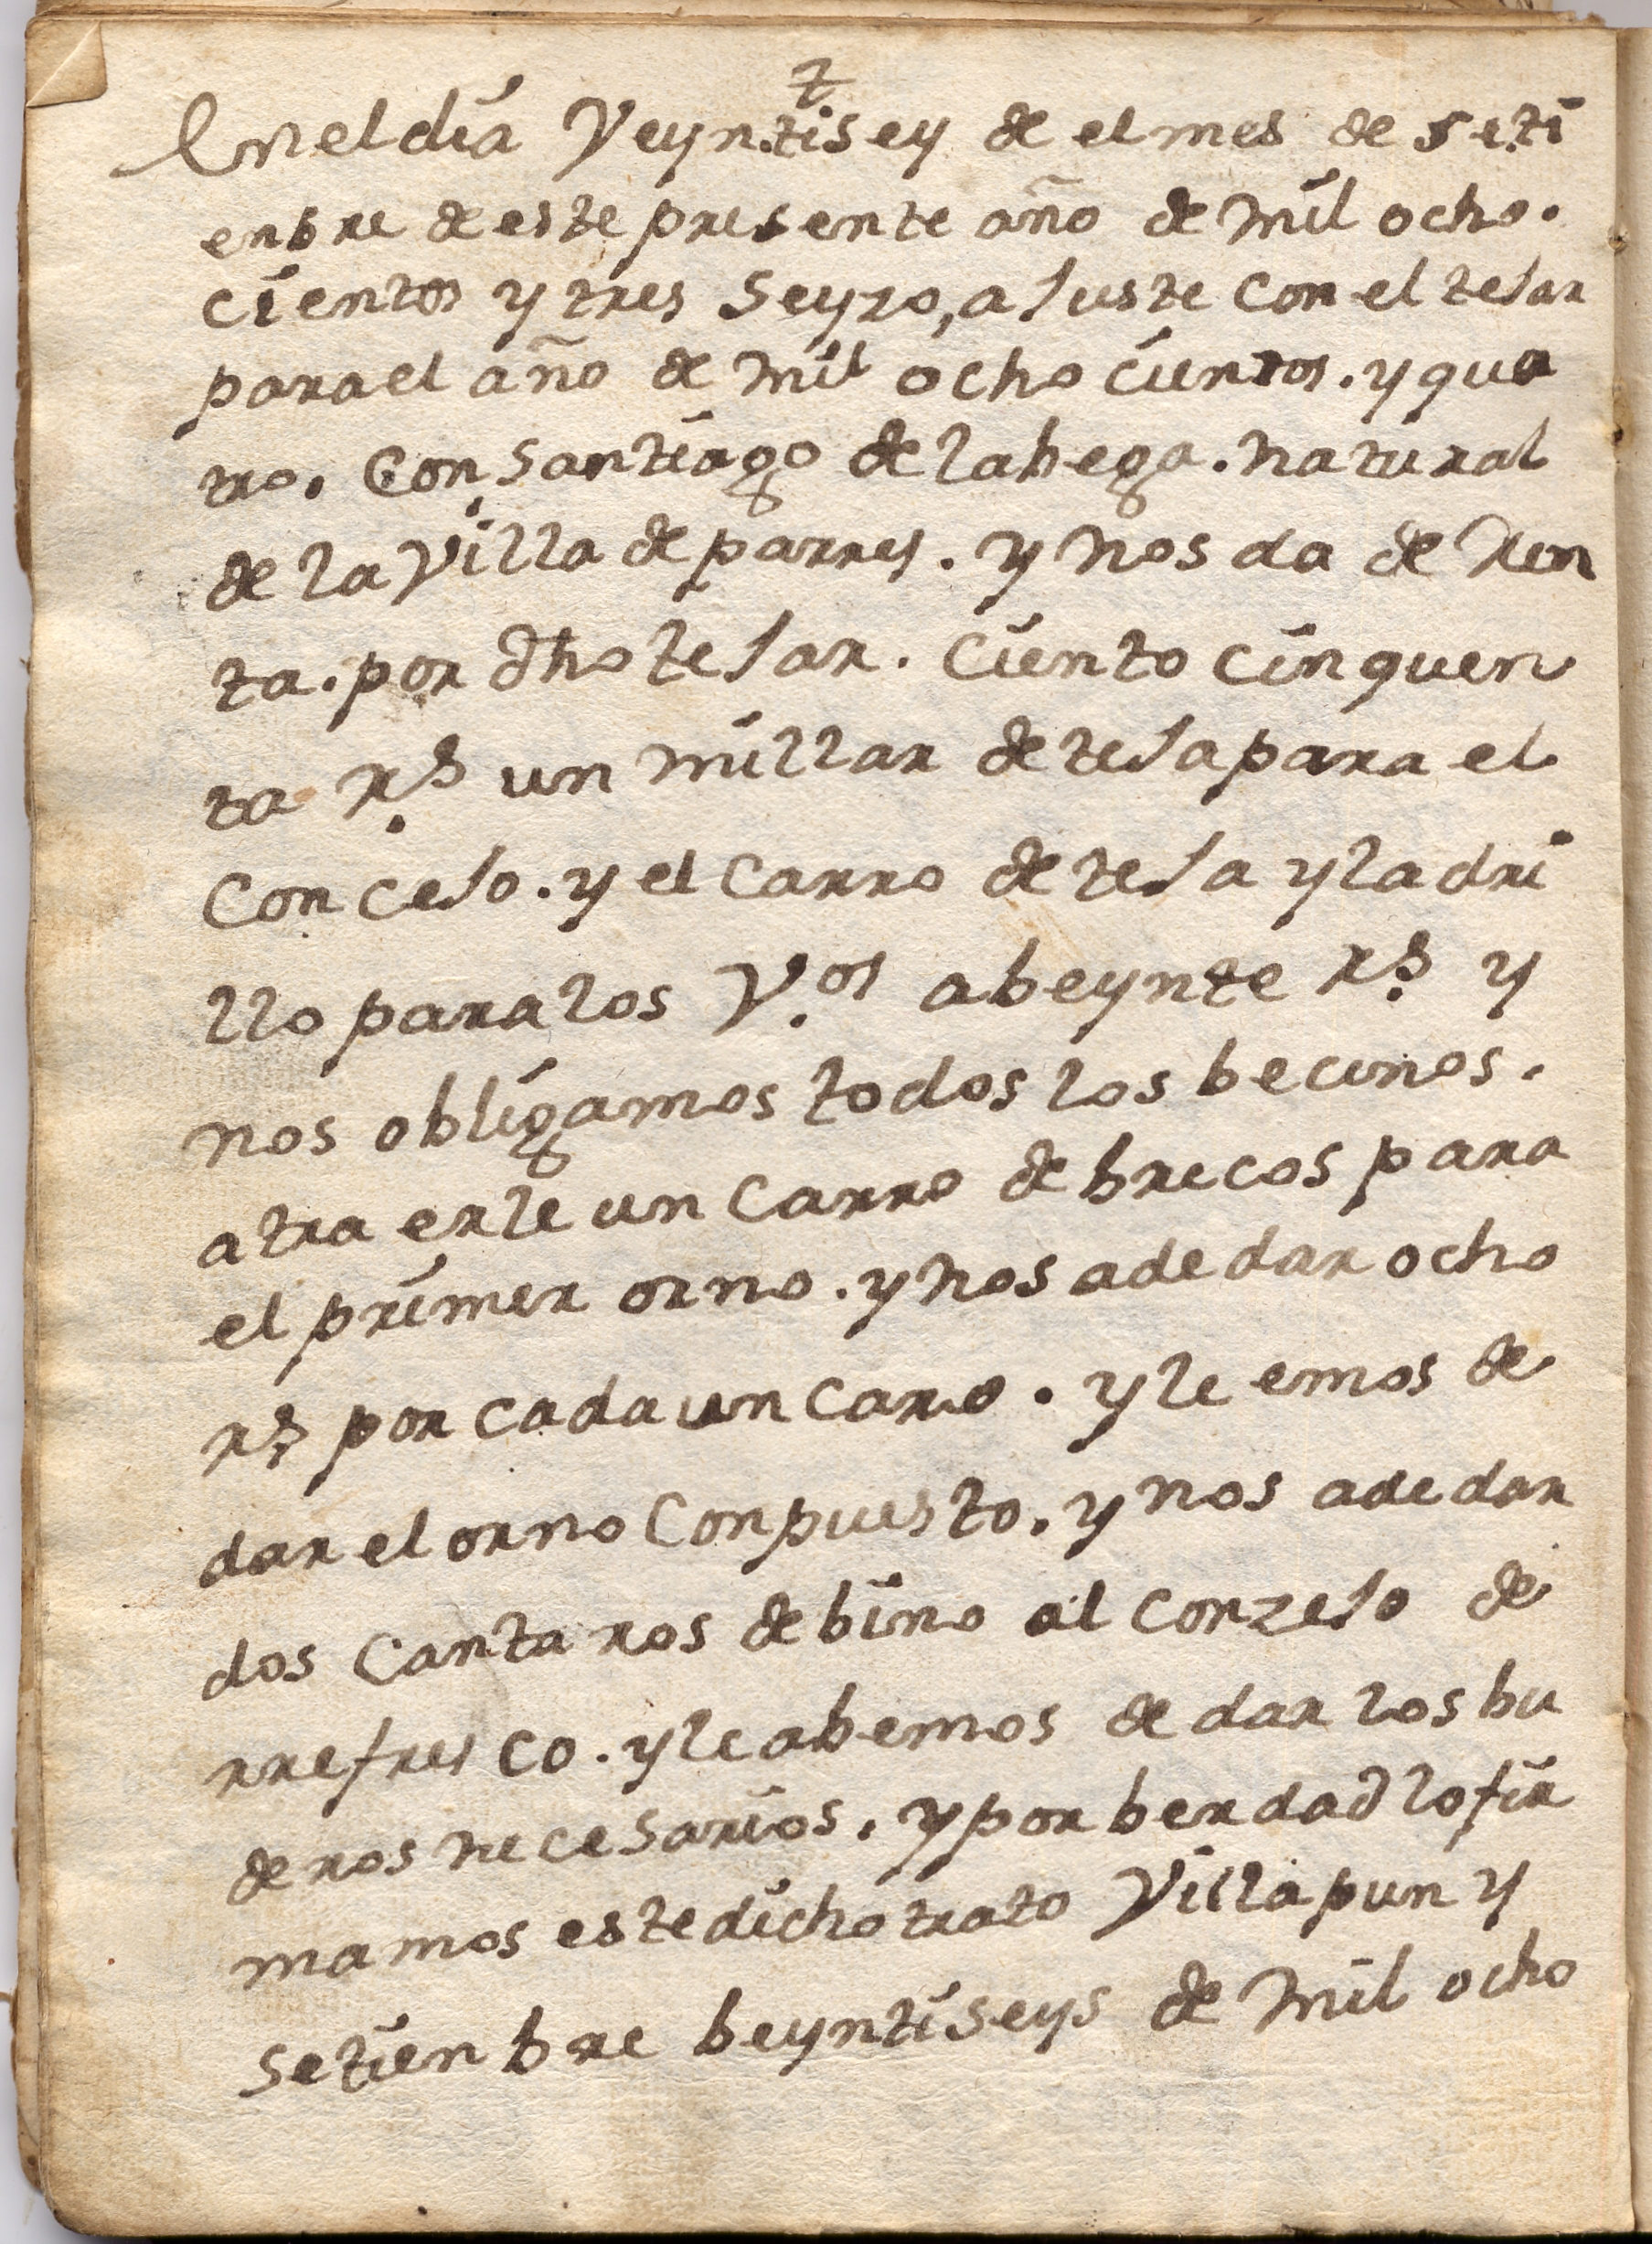 †
En el día Veyntisey de el mes de seti
enbre de este presente año de mil ocho.
cientos y tres seyzo, ajuste con el tejar
para el año de mil ocho cientos. y qua
tro. con santiago de la bega. natural
de la Villa de parres. y nos da de Ren
ta. por dho tejar. ciento cinquen
ta Rs un millar de teja para el
concejo. y el carro de teja y ladri
llo para los V.os a beynte Rs y
nos obligamos todos los becinos.
a tra erle un carro de brecos para
el primer orno. y nos a de dar ocho
Rs por cada un caro. y le emos de
dar el orno conpuesto. y nos a de dar
dos cantaros de bino al conzejo de
rrefresco. y le abemos de dar los bu
deros necesarios. y por berdad lo fir
mamos este dicho trato Villapun y
setienbre beyntiseys de mil ocho